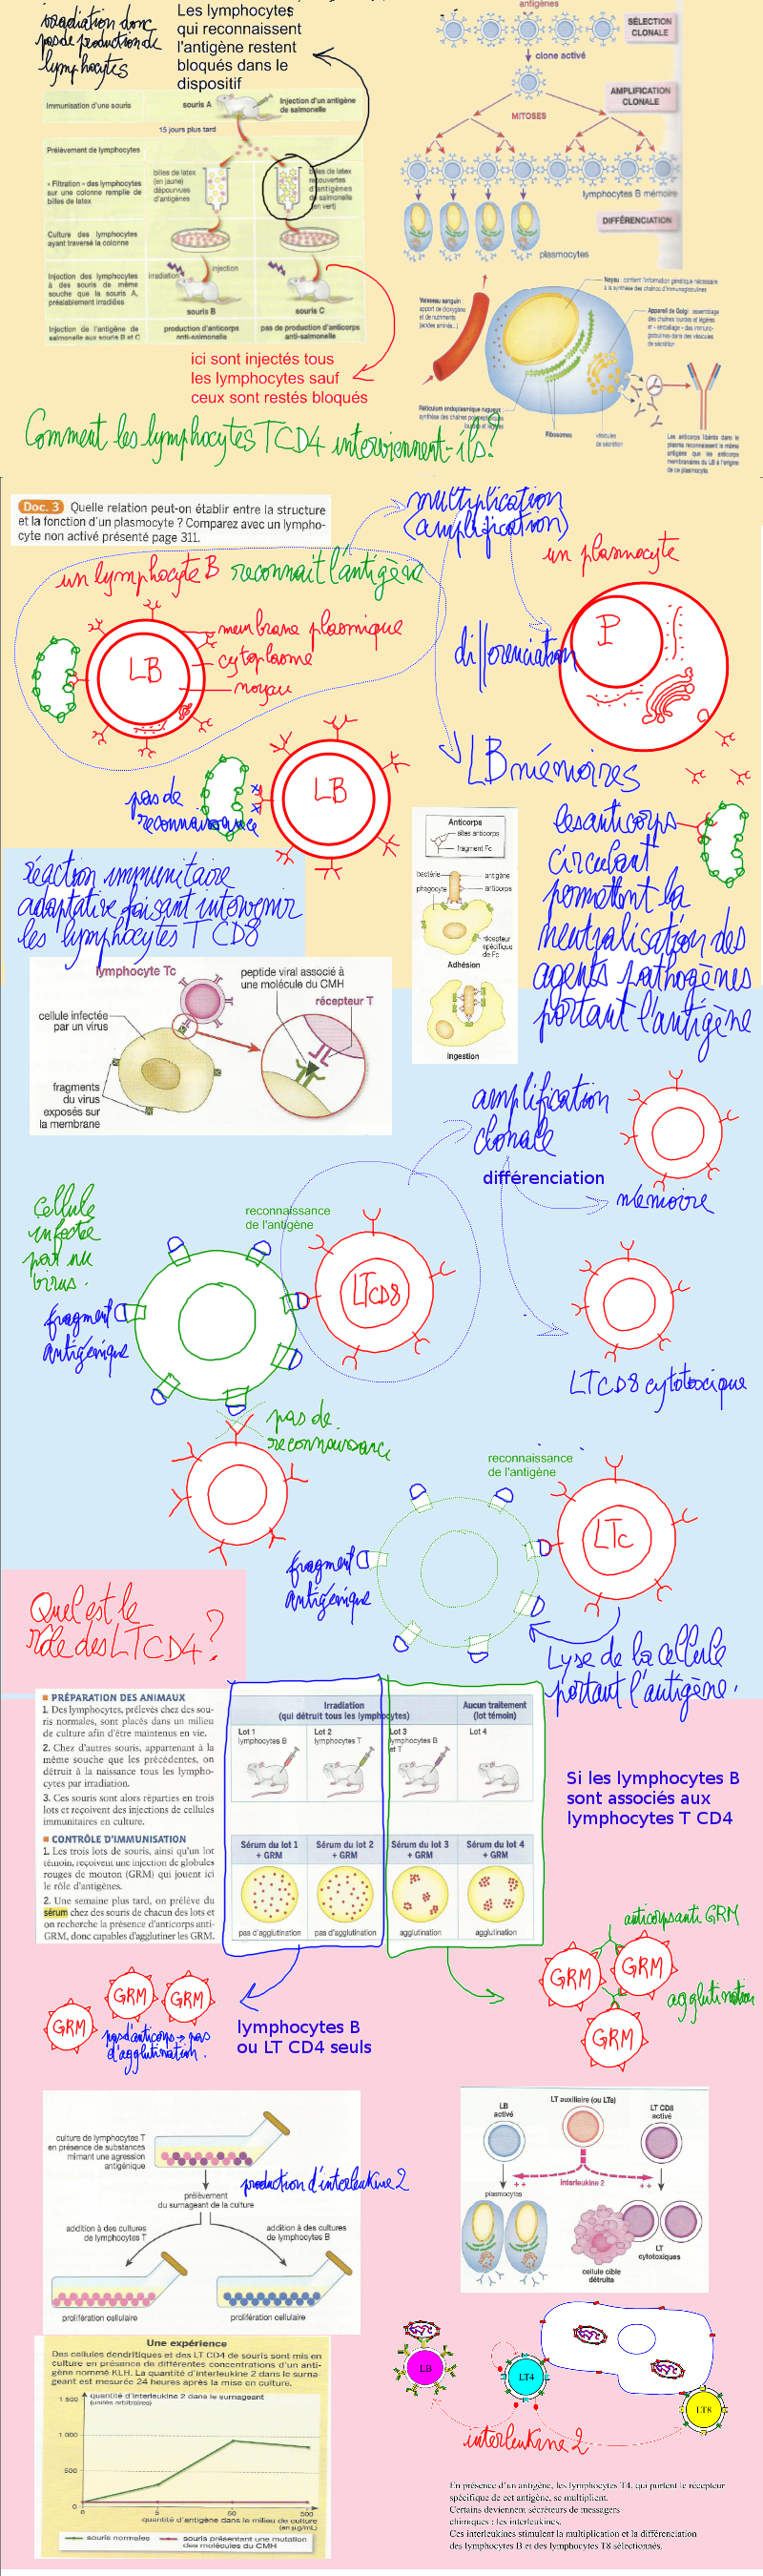 irradiation donc
pas de production de
lymphocytes
Les lymphocytes
qui reconnaissent
l'antigène restent
bloqués dans le
dispositif
Immunisation d'une souris
souris A
Injection d'un antigène
de salmonelle
15 jours plus tard
Prélèvement de lymphocytes
« Filtration » des lymphocytes
sur une colonne remplie de
billes de latex
billes de latex
(en jaune)
dépourvues
d'antigènes
billes de latex
recouvertes
d'antigènes
de salmonelle
(en vert)
Culture des lymphocytes
ayant traversé la colonne
Injection des lymphocytes
à des souris de même
souche que la souris A,
préalablement irradiées
irradiation
injection
souris B
souris C
Injection de l'antigène de
salmonelle aux souris B et C
production d'anticorps
anti-salmonelle
pas de production d'anticorps
anti-salmonelle
ici sont injectés tous
les lymphocytes sauf
ceux sont restés bloqués
antigènes
SÉLECTION
CLONALE
clone activé
AMPLIFICATION
CLONALE
MITOSES
lymphocytes B mémoire
DIFFÉRENCIATION
plasmocytes
Vaisseau sanguin :
apport de dioxygène
et de nutriments
(acides aminés...)
Noyau : contient l'information génétique nécessaire
à la synthèse des chaînes d'immunoglobulines
Appareil de Golgi : assemblage
des chaînes lourdes et légères
et « emballage » des immuno-
globulines dans des vésicules
de sécrétion.
Réticulum endoplasmique rugueux :
synthèse des chaînes polypeptidiques
lourdes et légères
Ribosomes
vésicules
de sécrétion
Les anticorps libérés dans le
plasma reconnaissent le même
antigène que les anticorps
membranaires du LB à l'origine
de ce plasmocyte.
Comment les lymphocytes TCD4 interviennent-ils?
Doc. 3 Quelle relation peut-on établir entre la structure
et la fonction d'un plasmocyte ? Comparez avec un lympho-
cyte non activé présenté page 311.
multiplication
(amplification)
un lymphocyte B reconnait l'antigène
un plasmocyte
membrane plasmique
cytoplasme
noyau
LB
P
différenciation
LB mémoires
LB
pas de
reconnaissance
Anticorps
sites anticorps
fragment Fc
bactérie
antigène
phagocyte
anticorps
récepteur
spécifique
de Fc
Adhésion
Ingestion
les anticorps
circulant
permettent la
neutralisation des
agents pathogènes
portant l'antigène
réaction immunitaire
adaptative faisant intervenir
les lymphocytes T CD8
lymphocyte Tc
peptide viral associé à
une molécule du CMH
récepteur T
cellule infectée
par un virus
fragments
du virus
exposés sur
la membrane
amplification
clonale
différenciation
mémoire
cellule
infectée
par un
virus.
reconnaissance
de l'antigène
LTCD8
fragment
antigénique
LTCD8 cytotoxique
pas de
reconnaissance
reconnaissance
de l'antigène
LTc
fragment
antigénique
Quel est le
rôle des LTCD4?
Lyse de la cellule
portant l'antigène.
PRÉPARATION DES ANIMAUX
1. Des lymphocytes, prélevés chez des sou-
ris normales, sont placés dans un milieu
de culture afin d'être maintenus en vie.
2. Chez d'autres souris, appartenant à la
même souche que les précédentes, on
détruit à la naissance tous les lympho-
cytes par irradiation.
3. Ces souris sont alors réparties en trois
lots et reçoivent des injections de cellules
immunitaires en culture.
CONTRÔLE D'IMMUNISATION
1. Les trois lots de souris, ainsi qu'un lot
témoin, reçoivent une injection de globules
rouges de mouton (GRM) qui jouent ici
le rôle d'antigènes.
2. Une semaine plus tard, on prélève du
sérum chez des souris de chacun des lots et
on recherche la présence d'anticorps anti-
GRM, donc capables d'agglutiner les GRM.
Irradiation
(qui détruit tous les lymphocytes)
Aucun traitement
(lot témoin)
Lot 1
lymphocytes B
Lot 2
lymphocytes T
Lot 3
lymphocytes B
et T
Lot 4
Sérum du lot 1
+ GRM
Sérum du lot 2
+ GRM
Sérum du lot 3
+ GRM
Sérum du lot 4
+ GRM
pas d'agglutination
pas d'agglutination
agglutination
agglutination
Si les lymphocytes B
sont associés aux
lymphocytes T CD4
anticorps anti GRM
GRM
GRM
GRM
agglutination
GRM
GRM
GRM
pas d'anticorps → pas
d'agglutination.
lymphocytes B
ou LT CD4 seuls
culture de lymphocytes T
en présence de substances
mimant une agression
antigénique
production d'interleukine 2
prélèvement
du surnageant de la culture
addition à des cultures
de lymphocytes T
addition à des cultures
de lymphocytes B
prolifération cellulaire
prolifération cellulaire
LB
activé
LT auxiliaire (ou LTa)
LT CD8
activé
interleukine 2
++
++
plasmocytes
LT
cytotoxiques
cellule cible
détruite
Une expérience
Des cellules dendritiques et des LT CD4 de souris sont mis en
culture en présence de différentes concentrations d'un anti-
gène nommé KLH. La quantité d'interleukine 2 dans le surna-
geant est mesurée 24 heures après la mise en culture.
quantité d'interleukine 2 dans le surnageant
(unités arbitraires)
1 500
1 000
500
0
5
50
500
quantité d'antigène dans le milieu de culture
(en µg/mL)
souris normales
souris présentant une mutation
des molécules du CMH
LB
LT4
LT8
interleukine 2
En présence d'un antigène, les lymphocytes T4, qui portent le récepteur
spécifique de cet antigène, se multiplient.
Certains deviennent sécréteurs de messagers
chimiques : les interleukines.
Ces interleukines stimulent la multiplication et la différenciation
des lymphocytes B et des lymphocytes T8 sélectionnés.